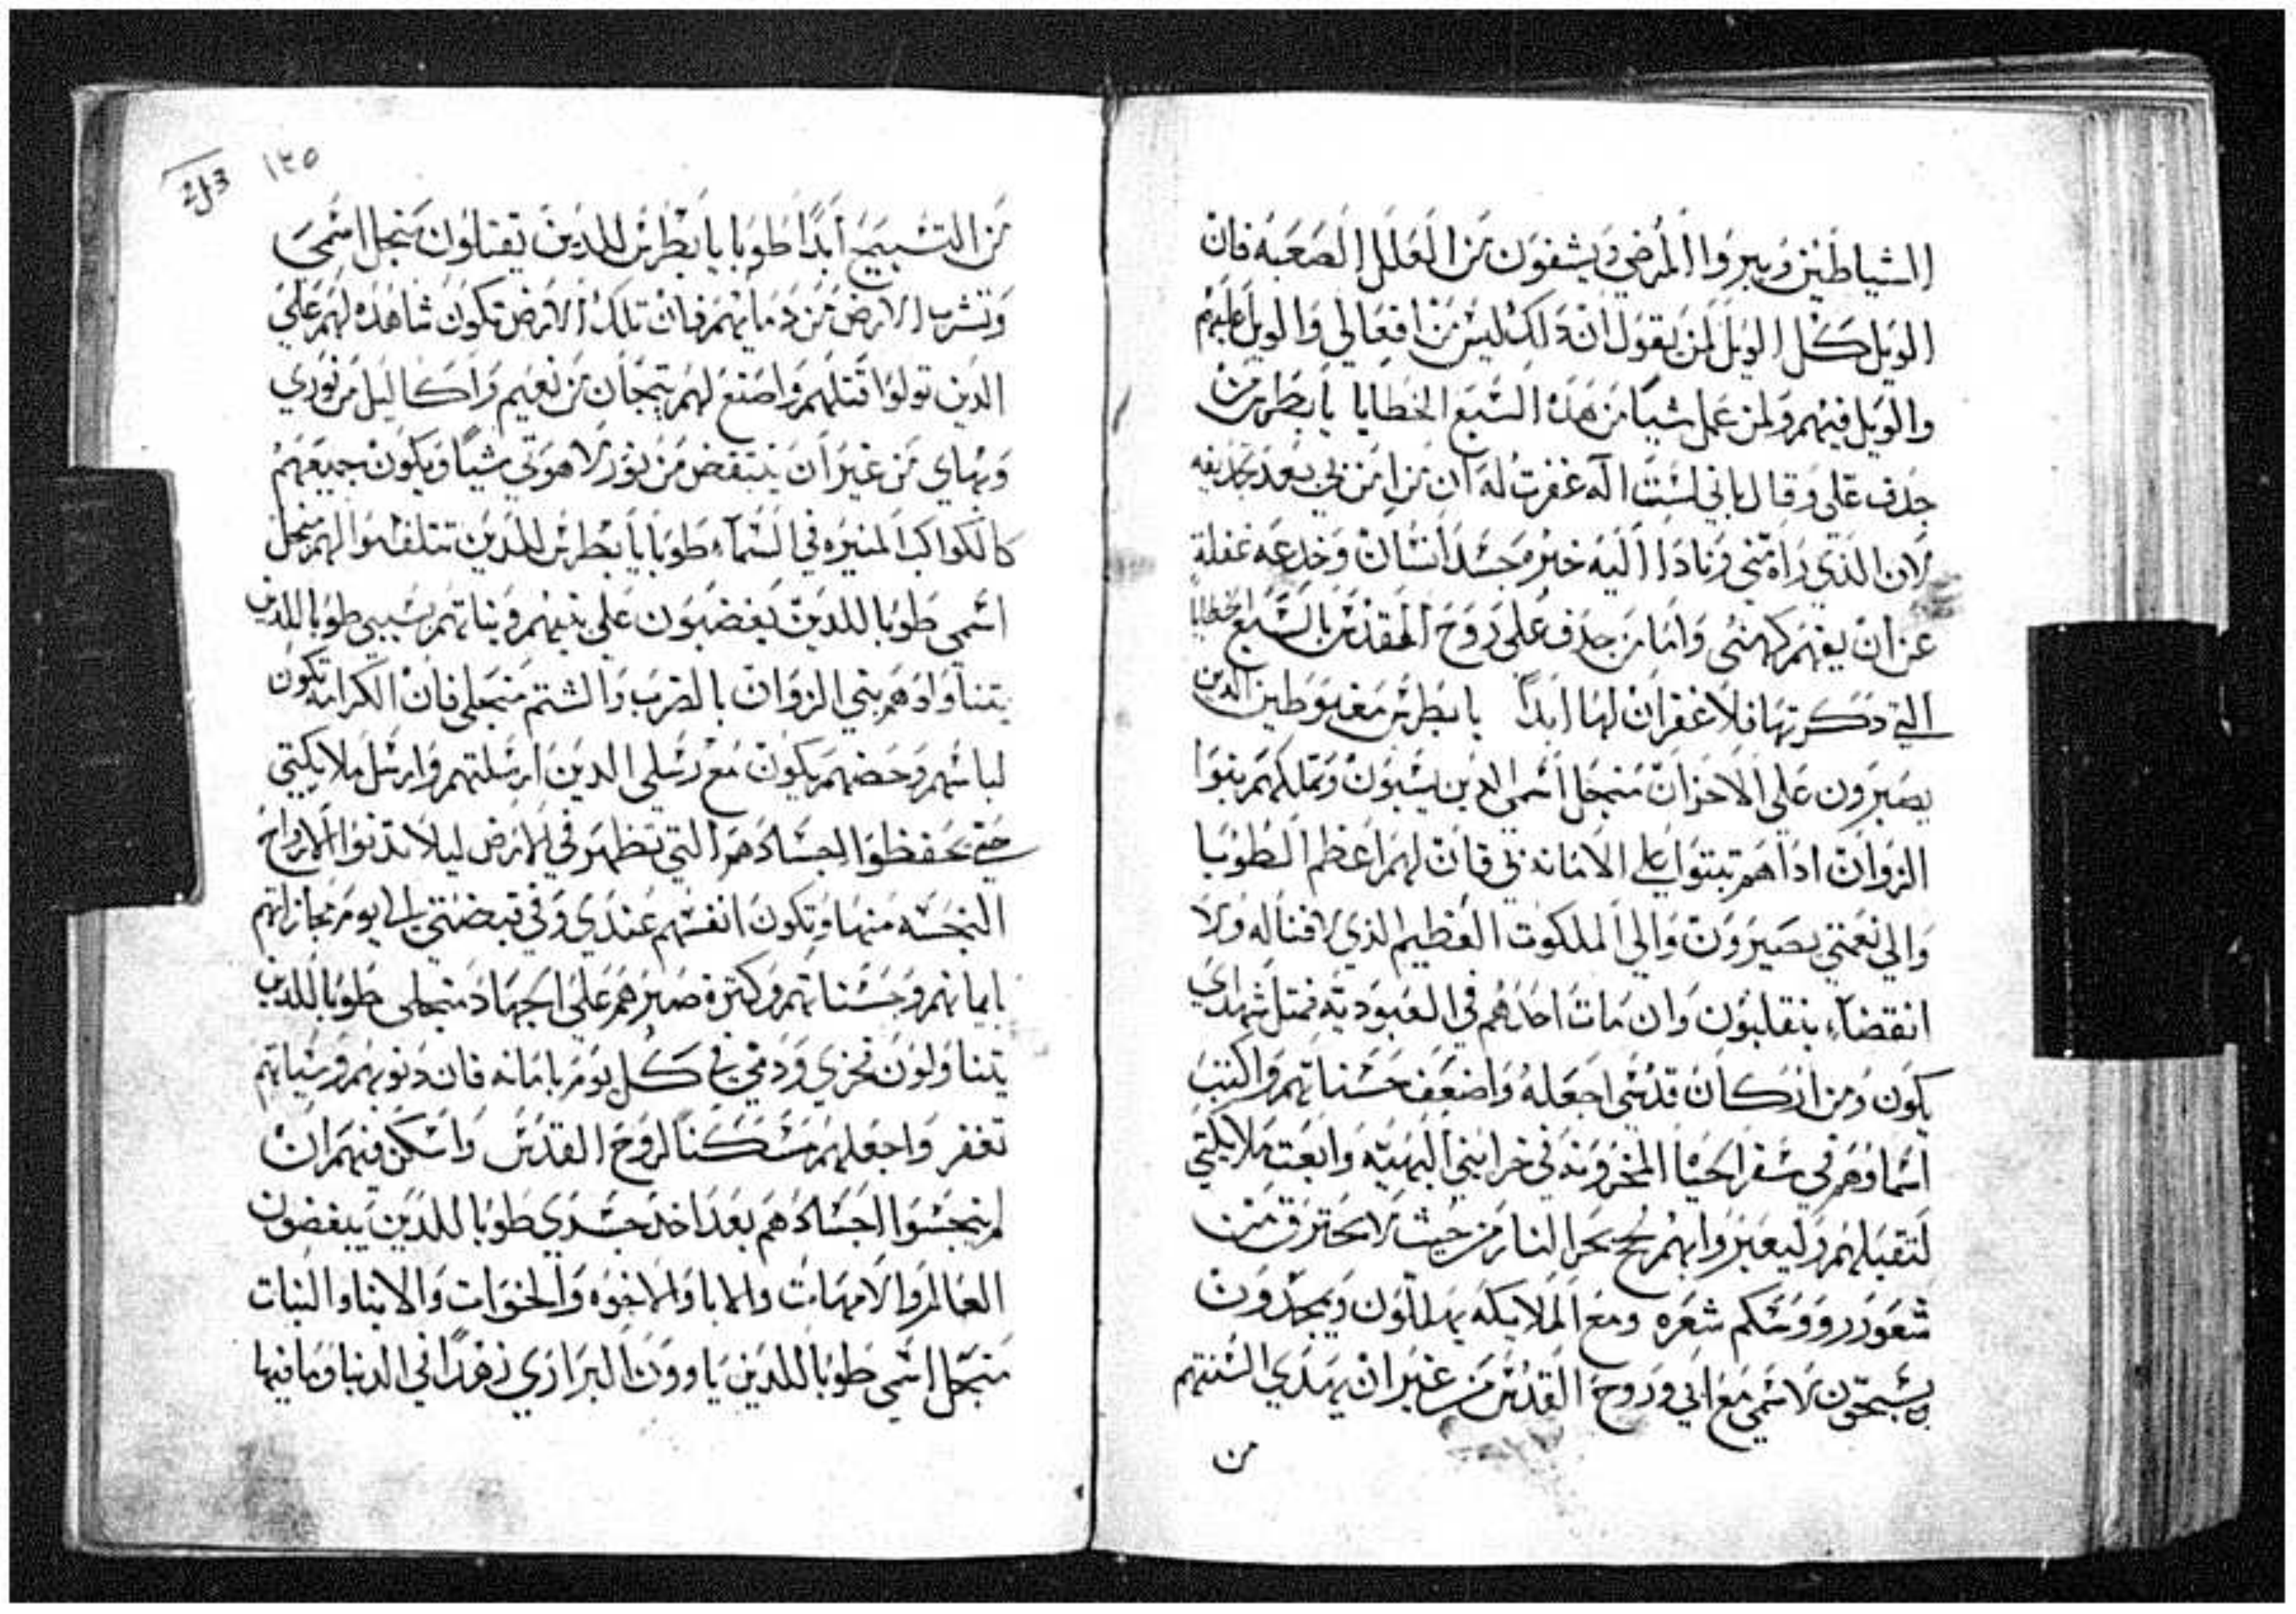 الشياطين ويبروا المرضي ويشفون من العلل الصعبه فان
الويل كل الويل لمن يقول ان دلك ليس من افعالي والويل عليهم
والويل فيهم ولمن عمل شيا من هده السبع الخطايا يا بطرس من
جدف علي وقال باني لست اله غفرت له ان من امن بي بعد تجديفه
لان الذي راه مني ونادا اليه خبر جسد انسان وخدعه غفلة
عن ان يفهم كهنتي واما من جدف علي روح القدس بالسبع الخطايا
التي دكرتها فلا غفران لها ابدا يا بطرس مغبوطين الدين
يصبرون علي الاحزان منجل اسمي الدين يسبون وتملكهم بنوا
الزوان ادا هم تبتوا علي الامانه بي فان لهم اعظم الطوبا
والي نعمتي يصيرون والي الملكوت العظيم الذي لا فنا له ولا
انقضاء ينقلبون وان مات احدهم في العبوديه فمتل شهداي
يكون ومن اركان قدسي اجعله واضعف حسناتهم واكتب
اسماوهم في سفر الحيا المخزونه في خزايني البهيه وابعت ملايكتي
لتقبلهم وليعبروا بهم لج بحر النار من حيث لا يحترق من
شعور رووسكم شعره ومع الملايكه يهللون ويمجدون
يسبحون لاسمي مع ابي وروح القدس من غير ان يهدي السنتهم
من
١٣٥
من التسبيح ابدا طوبا يا بطرس للدين يقتلون منجل اسمي
وتشرب الارض من دمايهم فان تلك الارض تكون شاهده لهم علي
الدين تولوا قتلهم واصنع لهم تيجان من نعيم واكاليل من نوري
وبهاي من غير ان ينتقص من نور لاهوتي شيا ويكون جميعهم
كالكواكب المنيره في السماء طوبا يا بطرس للدين تتلفهوا لهم منجل
اسمي طوبا للدين يغضبون علي بنيهم وبناتهم بسببي طوبا للدين
يتناولوهم بني الزوان بالضرب والشتم منجلي فان الكرامه تكون
لباسهم وحضهم يكون مع رسلي الدين ارسلتهم وارسل ملايكتي
حتي يحفظوا اجسادهم التي تظهر في الارض ليلا تدنوا الارواح
النجسه منها وتكون انفسهم عندي وفي قبضتي الي يوم مجازاتهم
بايمانهم وحسناتهم وكترة صبرهم علي الجهاد منجلي طوبا للدين
يتناولون نحري ودمي في كل يوم بامانه فان دنوبهم وسياتهم
تغفر واجعلهم مسكنا لروح القدس واسكن فيهم ان
لم ينجسوا اجسادهم بعد اخد جسدي طوبا للدين يبغضون
العالم والامهات والابا والاخوه والخوات والابنا والبنات
منجل اسمي طوبا للدين ياوون البراري زهدا في الدنيا وما فيها